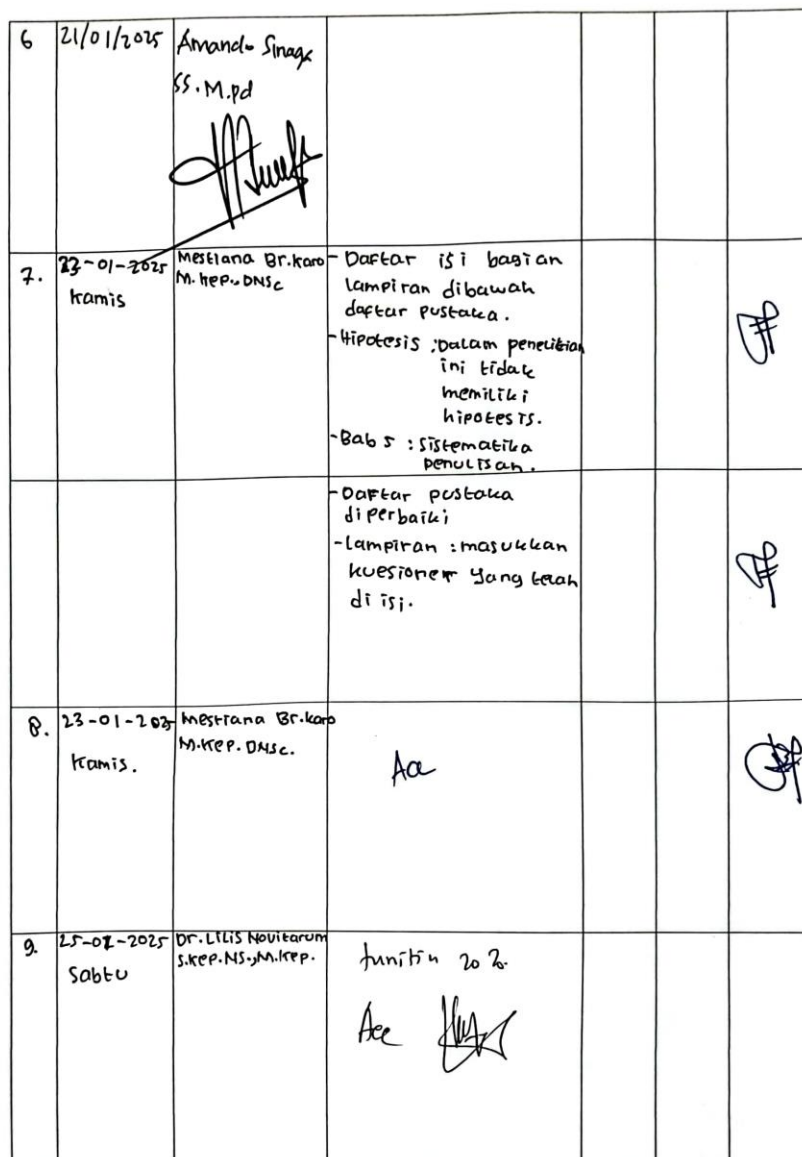 6
21/01/2025
Amando Sinaga
SS. M.pd
7.
23-01-2025
Kamis
Mestiana Br.Karo
M.Kep.,DNSc
- Daftar isi bagian
lampiran dibawah
daftar pustaka.
- Hipotesis : Dalam penelitian
ini tidak
memiliki
hipotesis.
- Bab 5 : Sistematika
penulisan.
- Daftar pustaka
diperbaiki
- Lampiran : masukkan
kuesioner yang telah
di isi.
8.
23-01-2025
Kamis.
Mestiana Br.Karo
M.Kep. DNSc.
Acc
9.
25-01-2025
Sabtu
Dr. Lilis Novitarum
S.Kep.NS.,M.Kep.
20 %
Acc